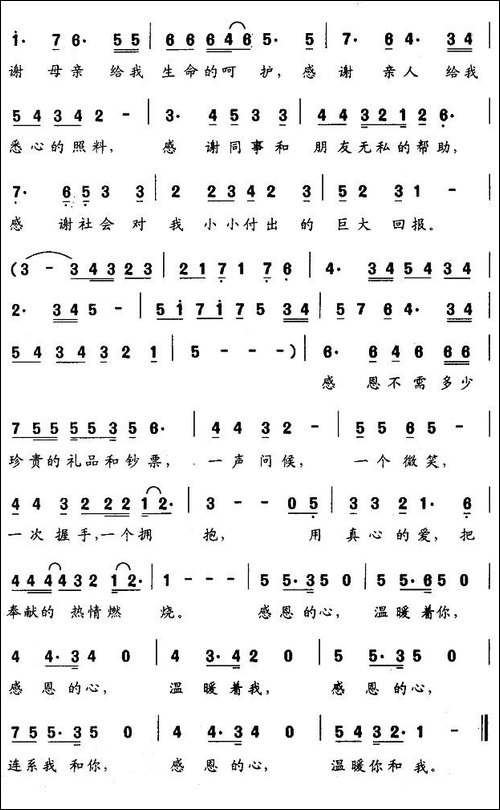 1· 7 6· 5 5 | 6 6 6 6 4 6 5· 5 | 7· 6 4· 3 4
谢 母 亲 给我 生命的呵 护, 感 谢 亲 人 给我
5 4 3 4 2 - | 3· 4 5 3 3 | 4 4 3 2 1 2 6·
悉心的照料, 感 谢同事和 朋友无私的帮助,
7· 6 5 3 3 | 2 2 3 4 2 3 | 5 2 3 1 -
感 谢社会 对 我 小小付出 的 巨大 回报。
(3 - 3 4 3 2 3 | 2 1 7 1 7 6 | 4· 3 4 5 4 3 4
2· 3 4 5 - | 5 1 7 1 7 5 3 4 | 5 7 6 4· 3 4
5 4 3 4 3 2 1 | 5 - - - ) | 6· 6 4 6 6 6
感 恩不需 多少
7 5 5 5 5 3 5 6· | 4 4 3 2 - | 5 5 6 5 -
珍贵的礼品和钞票, 一声问候, 一个微笑,
4 4 3 2 2 2 1 2· | 3 - - 0 5 | 3 3 2 1· 6
一次 握手,一个拥 抱, 用 真心的爱, 把
4 4 4 4 3 2 1 2· | 1 - - - | 5 5·3 5 0 | 5 5·6 5 0
奉献的 热情燃 烧。 感恩的心, 温暖着你,
4 4·3 4 0 | 4 3·4 2 0 | 5 5·3 5 0
感 恩的心, 温 暖着我, 感 恩的心,
7 5 5 5·3 5 0 | 4 4·3 4 0 | 5 4 3 2· 1 -
连系我 和你, 感 恩的心, 温暖你和 我。